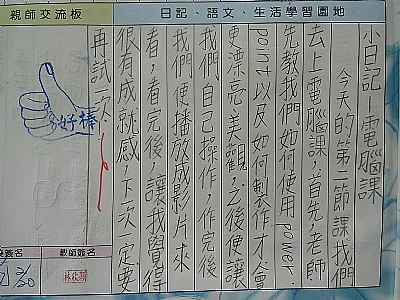 親師交流板
日記、語文、生活學習園地
小日記-電腦課
今天的第一節課我們
去上電腦課,首先,老師
先教我們如何使用power.
point以及如何製作才會
更漂亮美觀,之後便讓
我們自己操作,作完後
我們便播放成影片來
看,看完後,讓我覺得
很有成就感,下次一定要
再試一次.
好棒
簽名
教師姓名